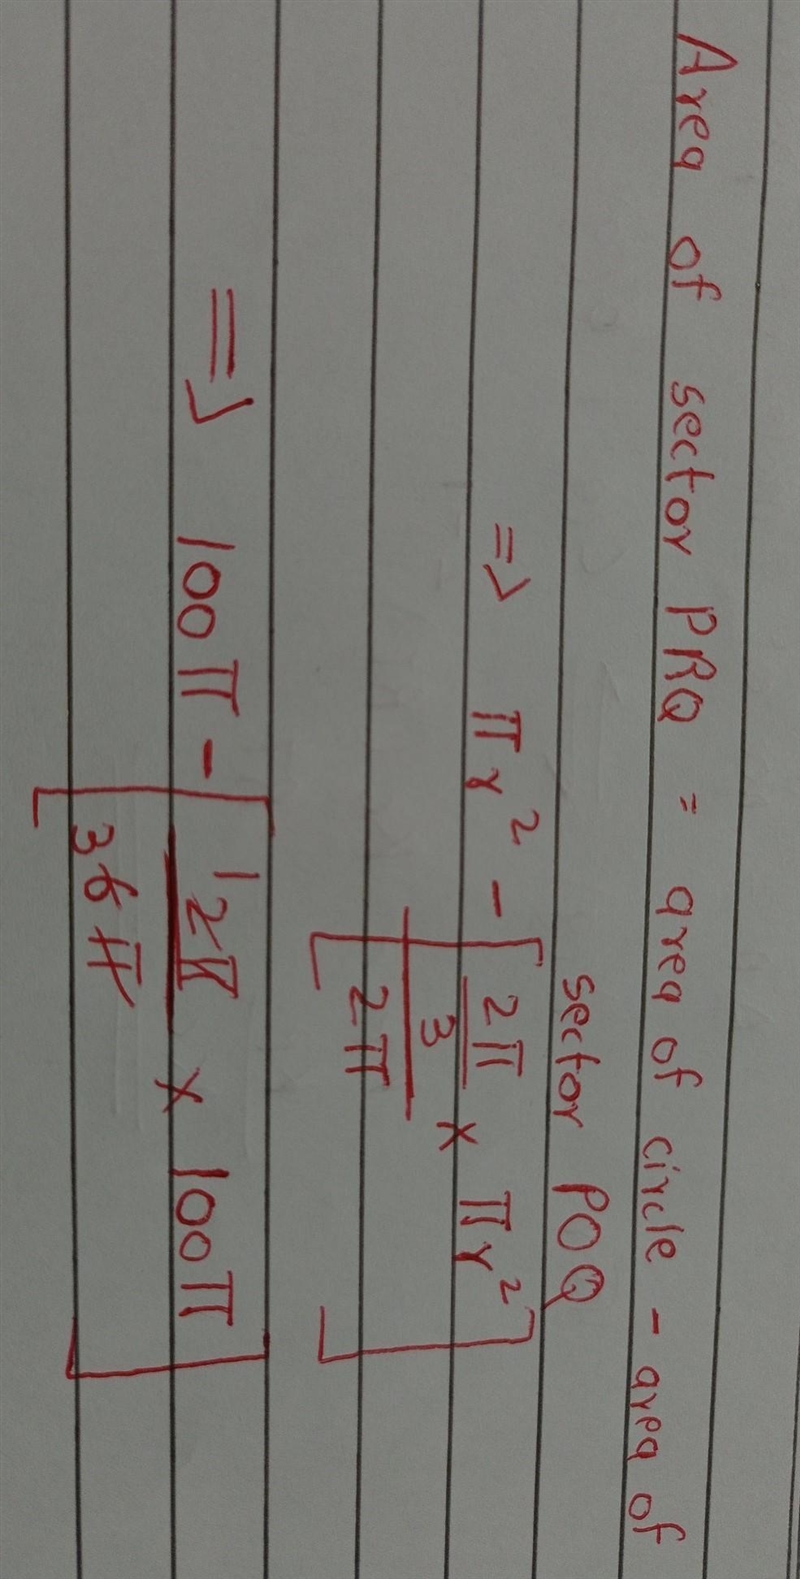 Area of sector PRQ = area of circle - area of
sector POQ
=> πr² - [ (2π/3)/(2π) × πr² ]
=> 100π - [ 12π/36π × 100π ]